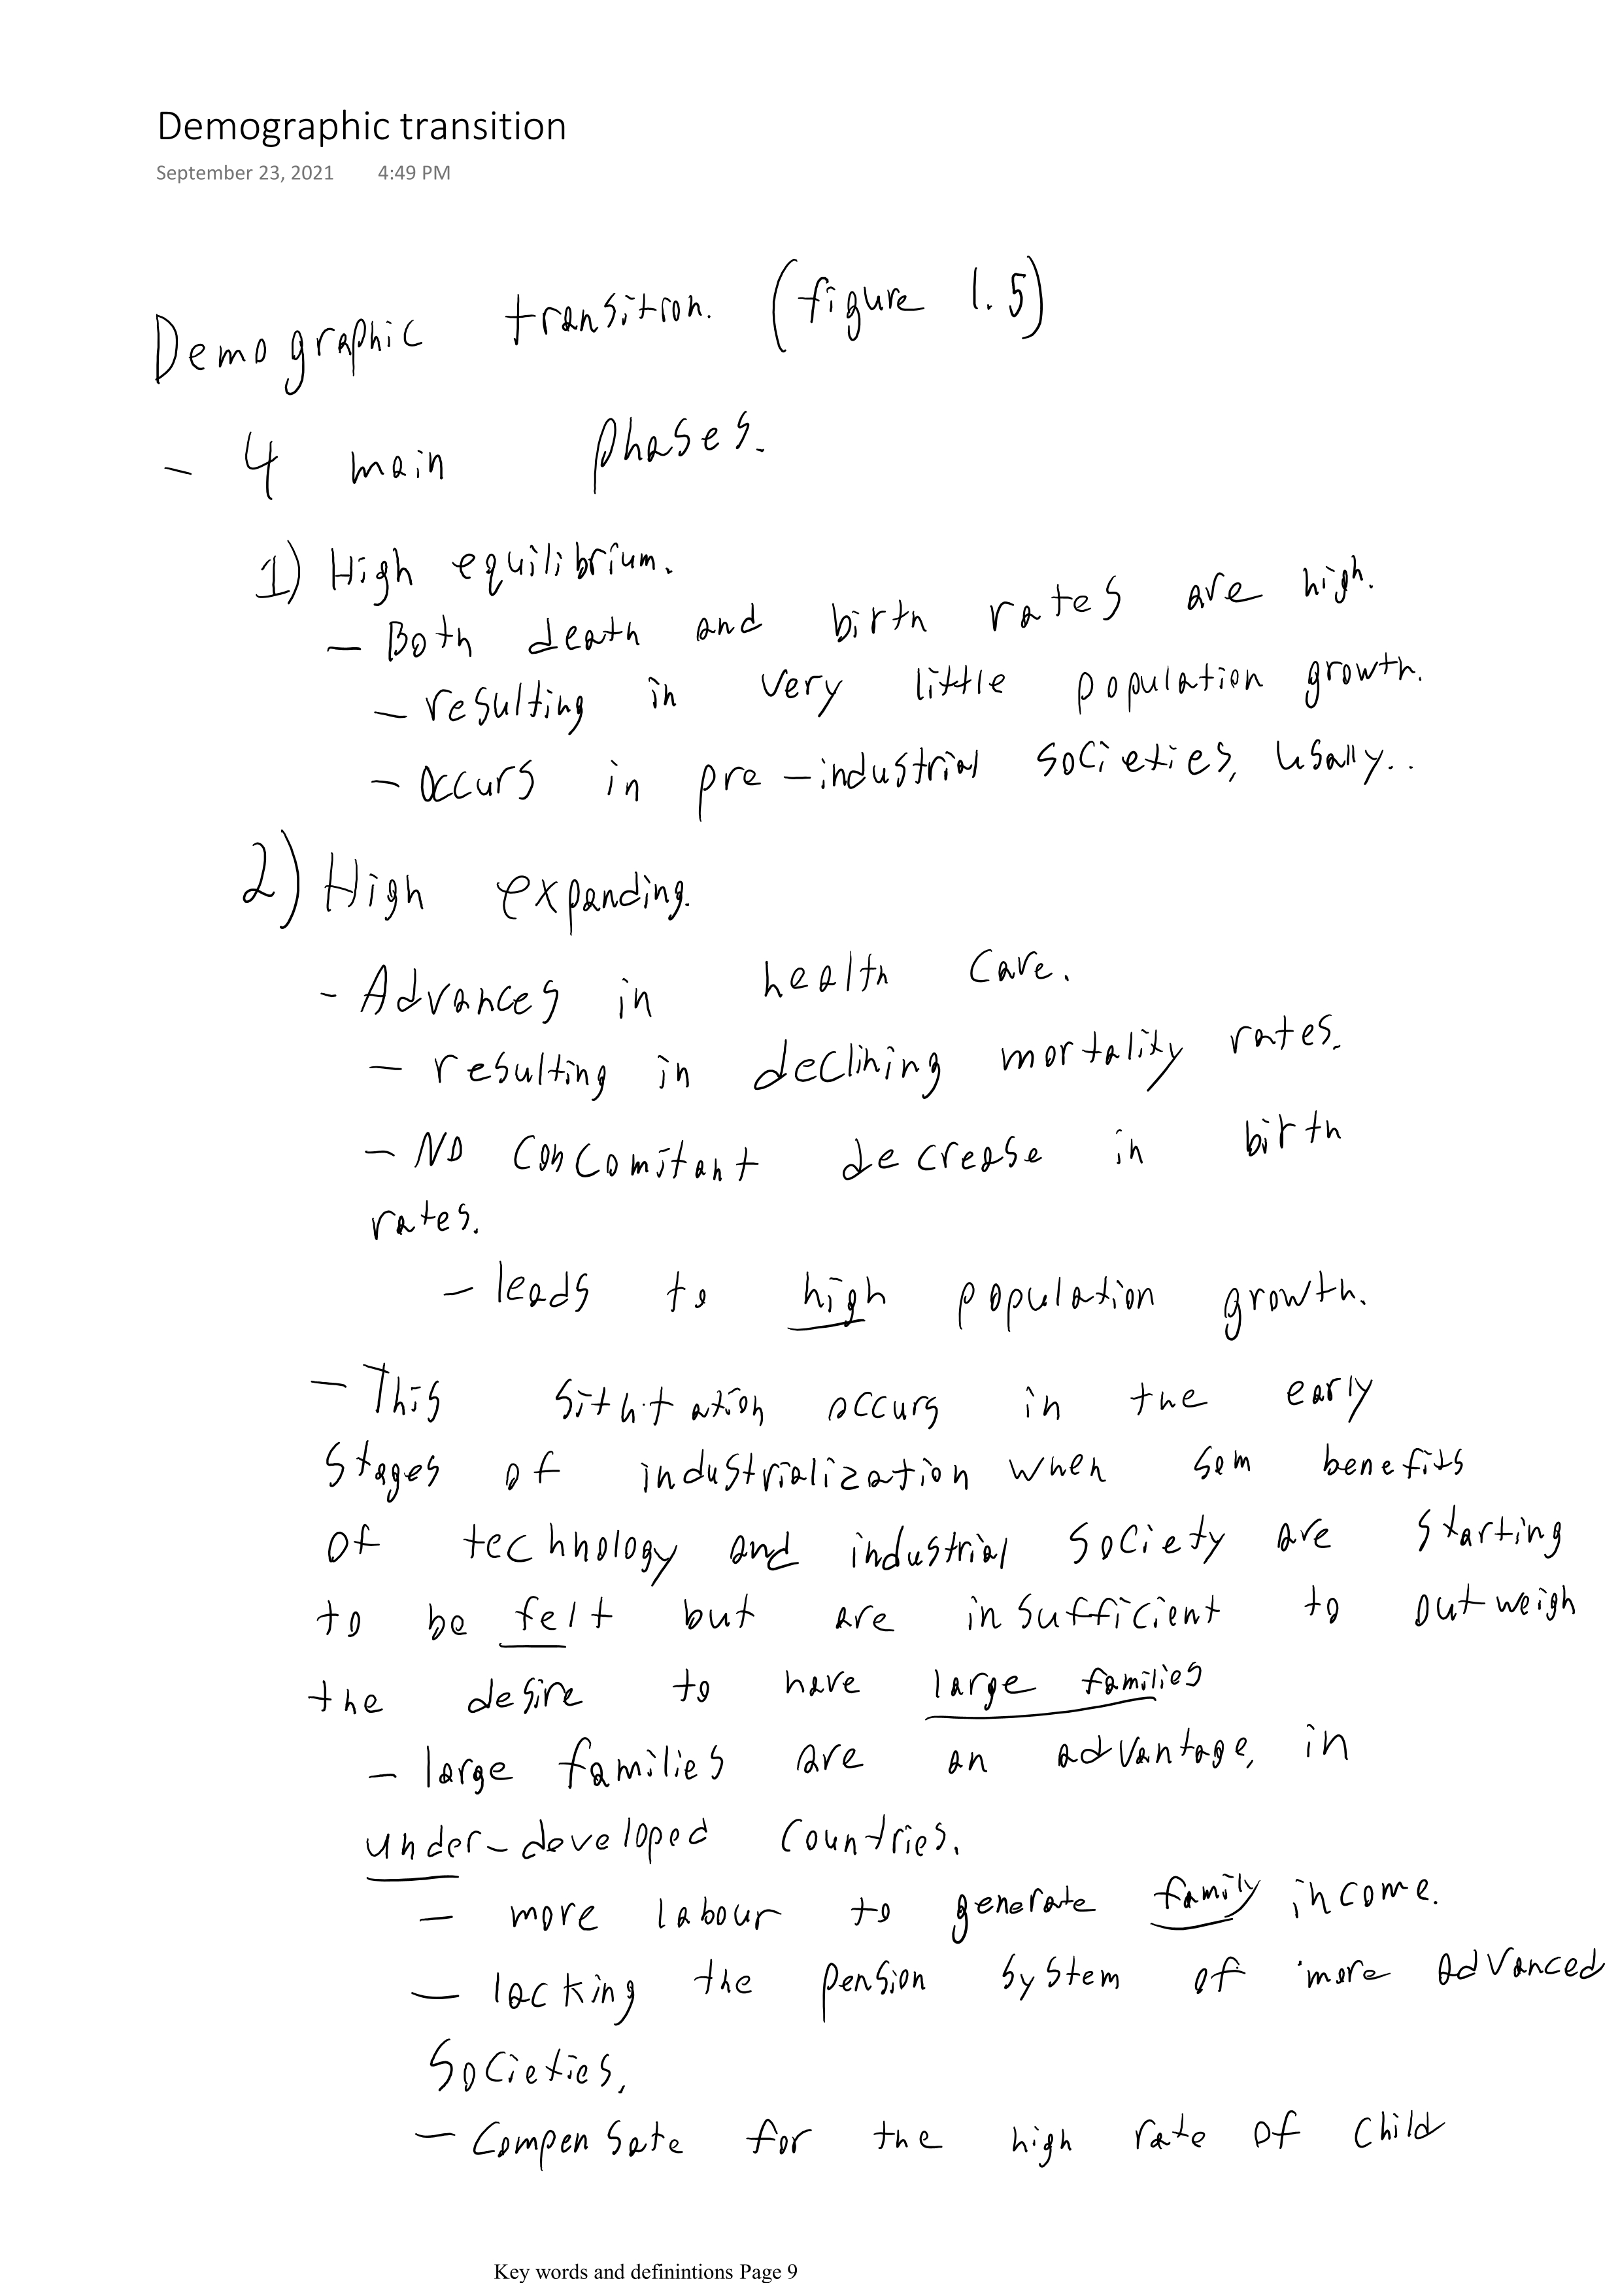 Demographic transition
September 23, 2021 4:49 PM
Demographic transition. (figure 1.5)
- 4 main phases.
1) High equilibrium.
- Both death and birth rates are high.
- resulting in very little population growth.
- occurs in pre-industrial societies, usally..
2) High expanding.
- Advances in health care.
- resulting in declining mortality rates.
- No concomitant decrease in birth
rates.
- leads to high population growth.
- This occurs in the early
stages of industrialization when som benefits
of technology and industrial society are starting
to be felt but are insufficient to outweigh
the desire to have large families
- large families are an advantage, in
under-developed countries.
- more labour to generate family income.
- lacking the pension system of more advanced
societies,
- compensate for the high rate of child
Key words and definintions Page 9